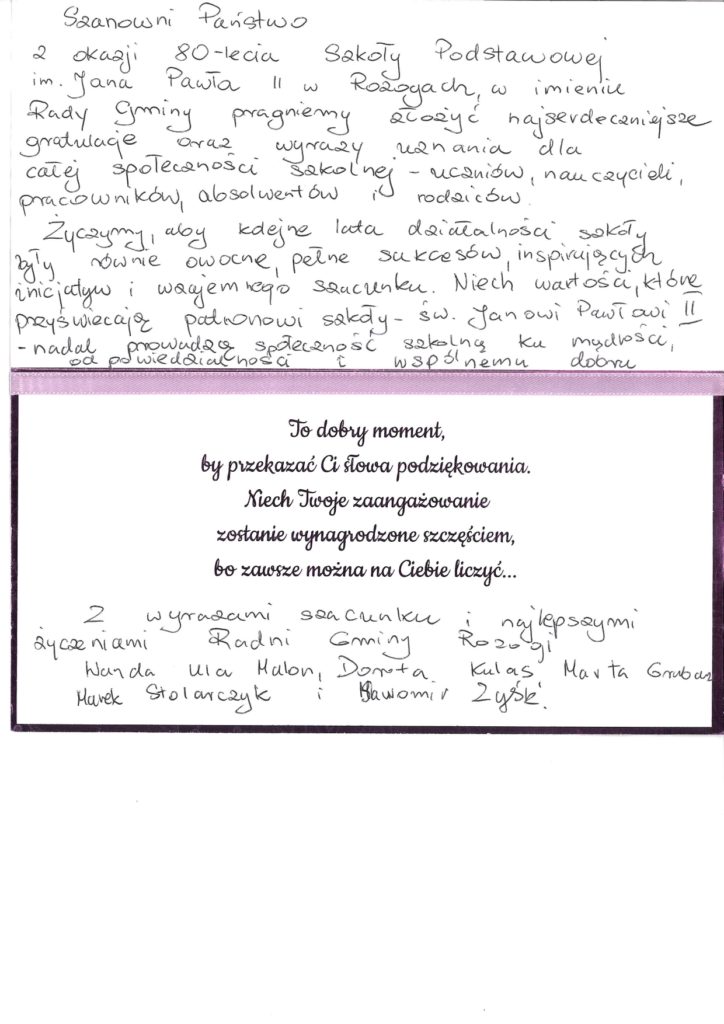 Szanowni Państwo
z okazji 80-lecia Szkoły Podstawowej
im. Jana Pawła II w Rozogach, w imieniu
Rady Gminy pragniemy złożyć najserdeczniejsze
gratulacje oraz wyrazy uznania dla
całej społeczności szkolnej - uczniów, nauczycieli,
pracowników, absolwentów i rodziców.
Życzymy, aby kolejne lata działalności szkoły
były równie owocne, pełne sukcesów, inspirujących
inicjatyw i wzajemnego szacunku. Niech wartości, które
przyświecają patronowi szkoły - św. Janowi Pawłowi II
- nadal prowadzą społeczność szkolną ku mądrości,
odpowiedzialności i wspólnemu dobru
To dobry moment,
by przekazać Ci słowa podziękowania.
Niech Twoje zaangażowanie
zostanie wynagrodzone szczęściem,
bo zawsze można na Ciebie liczyć...
Z wyrazami szacunku i najlepszymi
życzeniami Radni Gminy Rozogi
Wanda Dorota Kulas, Marta
Marek Stolarczyk i Sławomir Zyśk.